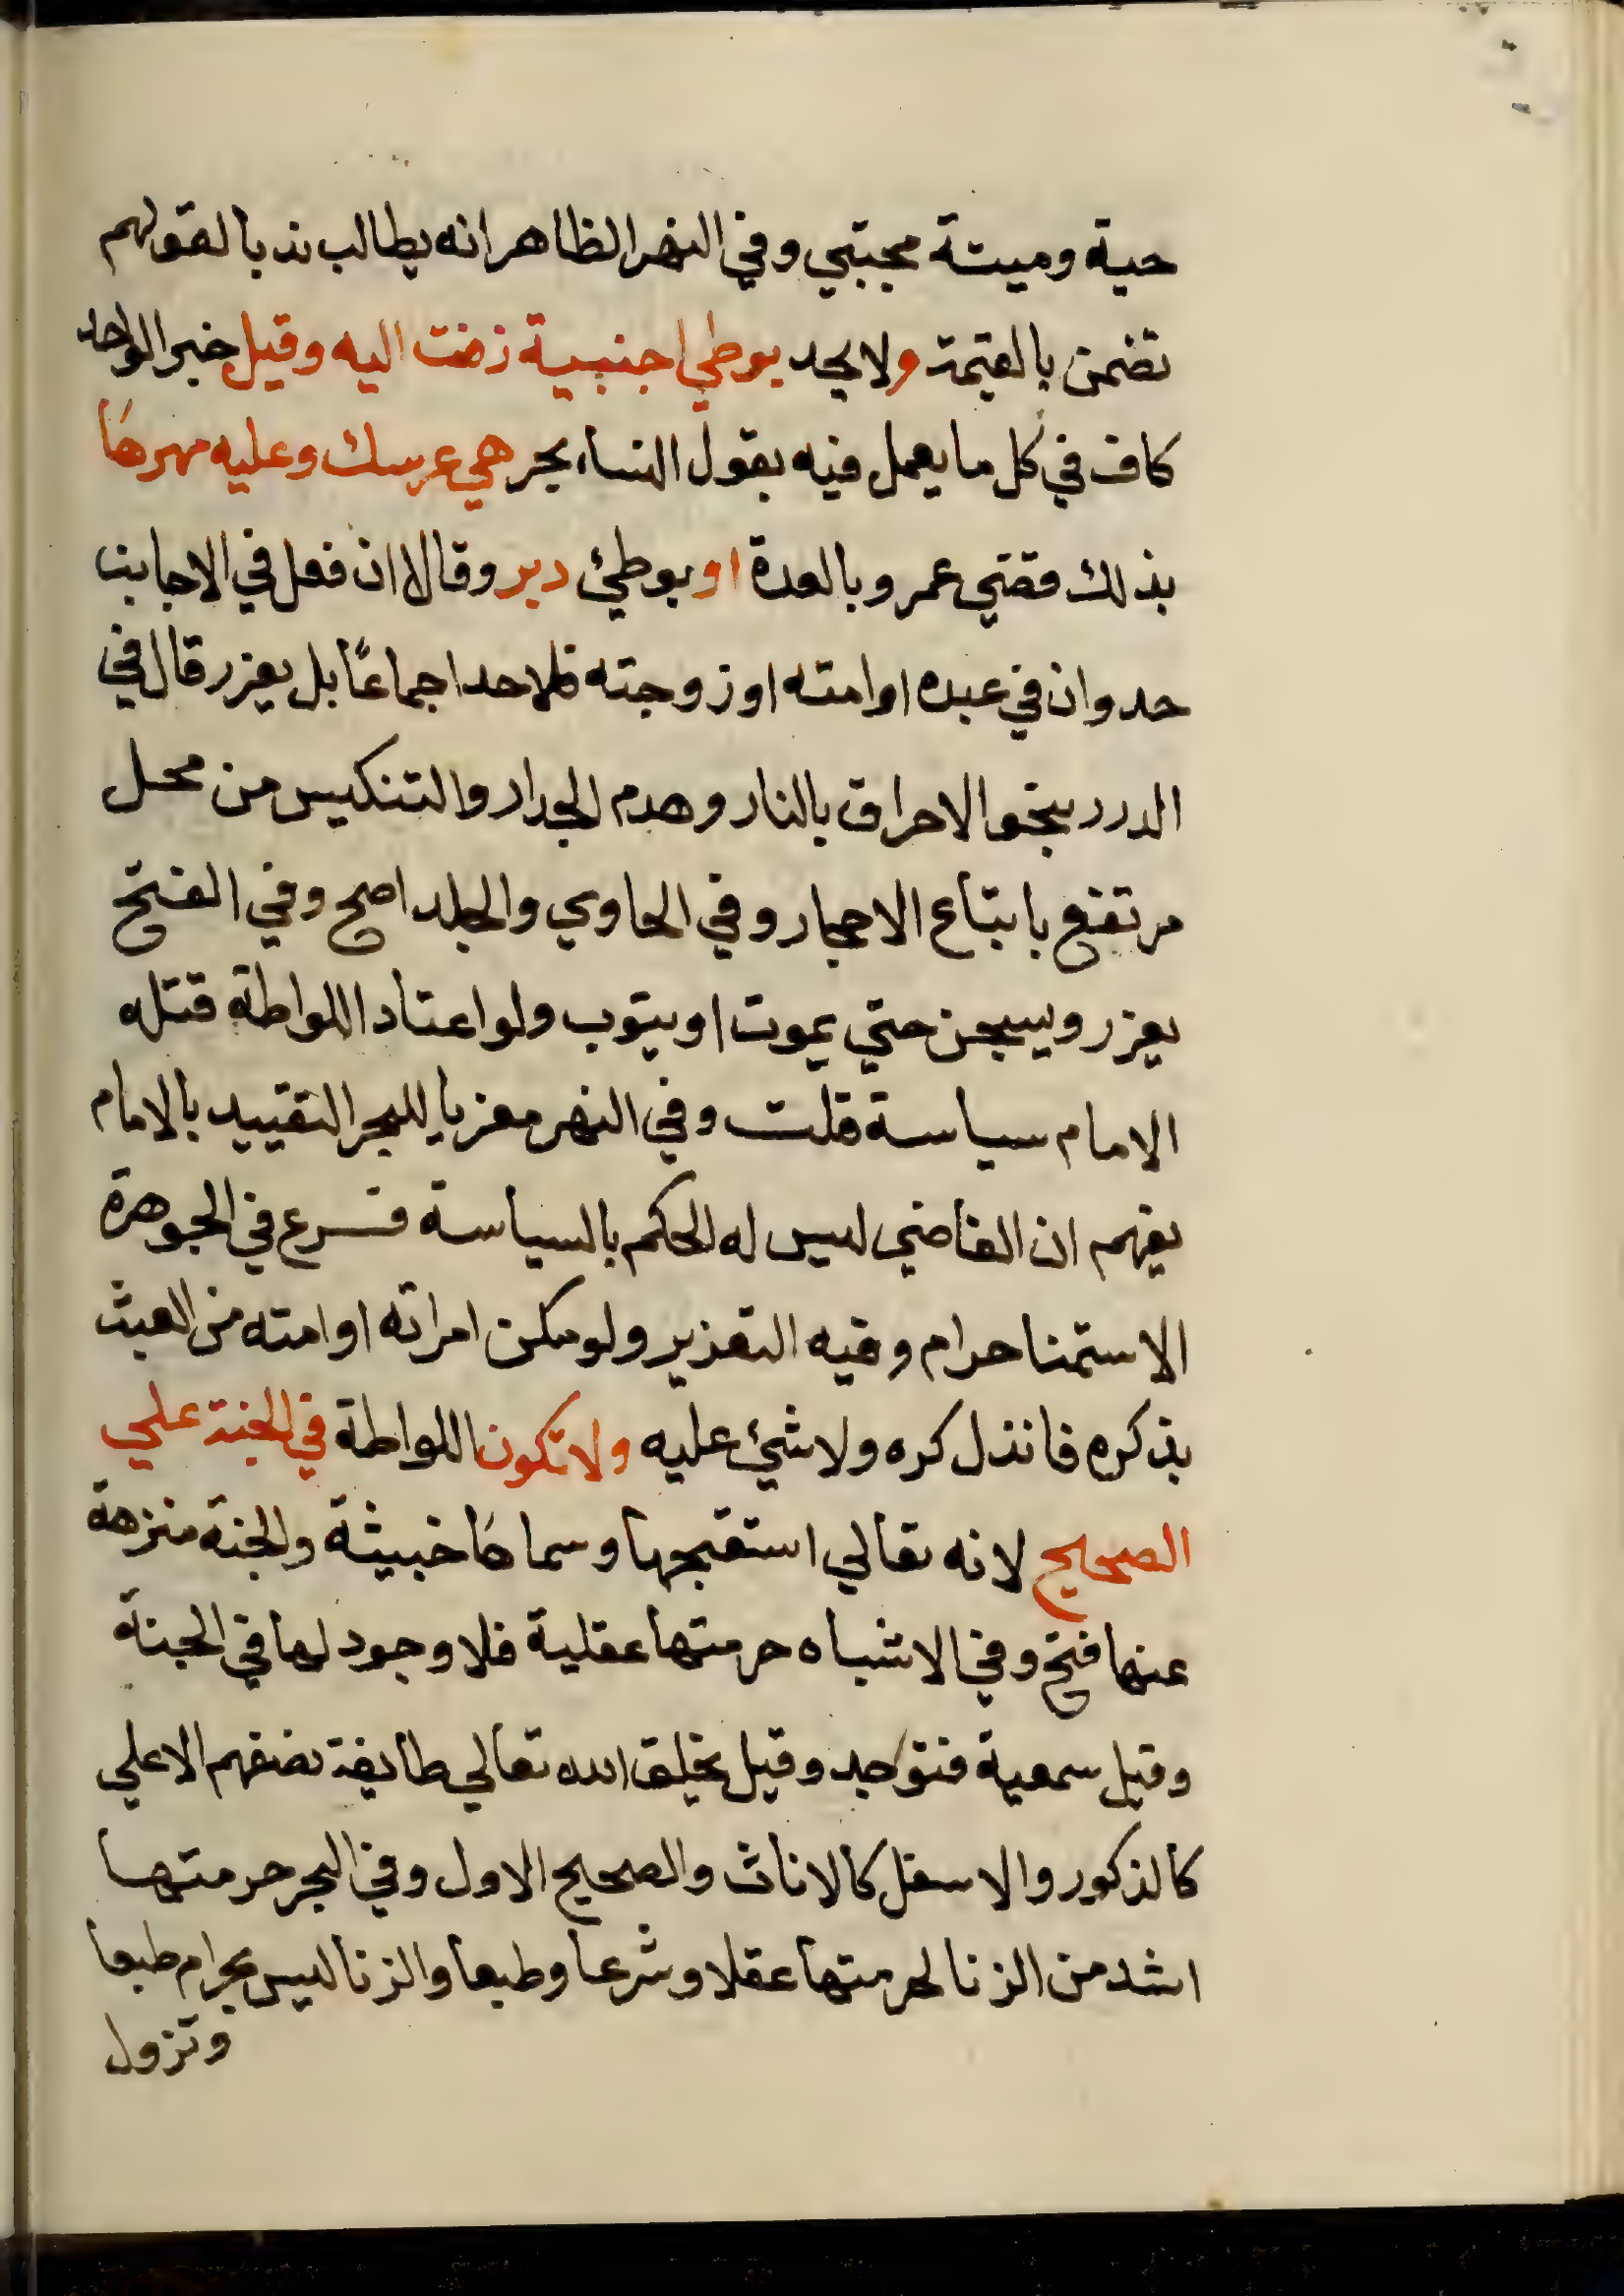 حية وميتة مجتبي وفي النهر الظاهر انه يطالب ندبا لقولهم
تضمن بالقيمة ولا يحد بوطي اجنبية زفت اليه وقيل خبر الواحد
كاف في كل ما يعمل فيه بقول النساء بحر هي عرسك وعليه مهرها
بذلك قضي عمر وبالعدة او بوطئ دبر وقالا ان فعل في الاجانب
حد وان في عبده او امته او زوجته فلا حد اجماعًا بل يعزر قال في
الدرر بنحو الاحراق بالنار وهدم الجدار والتنكيس من محل
مرتفع باتباع الاحجار وفي الحاوي والجلد اصح وفي الفتح
يعزر ويسجن حتي يموت او يتوب ولو اعتاد اللواطة قتله
الامام سياسة قلت وفي النهر معزيا للبحر التقييد بالامام
يفهم ان القاضي ليس له الحكم بالسياسة فرع في الجوهرة
الاستمنا حرام وفيه التعزير ولو مكن امراته او امته من العبث
بذكره فانزل كره ولا شئ عليه ولا تكون اللواطة في الجنة علي
الصحيح لانه تعالي استقبحها وسماها خبيثة والجنة منزهة
عنها فتح وفي الاشباه حرمتها عقلية فلا وجود لها في الجنة
وقيل سمعية فتوجد وقيل يخلق الله تعالي طايفة نصفهم الاعلي
كالذكور والاسفل كالاناث والصحيح الاول وفي البحر حرمتها
اشد من الزنا لحرمتها عقلا وشرعا وطبعا والزنا ليس بحرام طبعا
وتزول